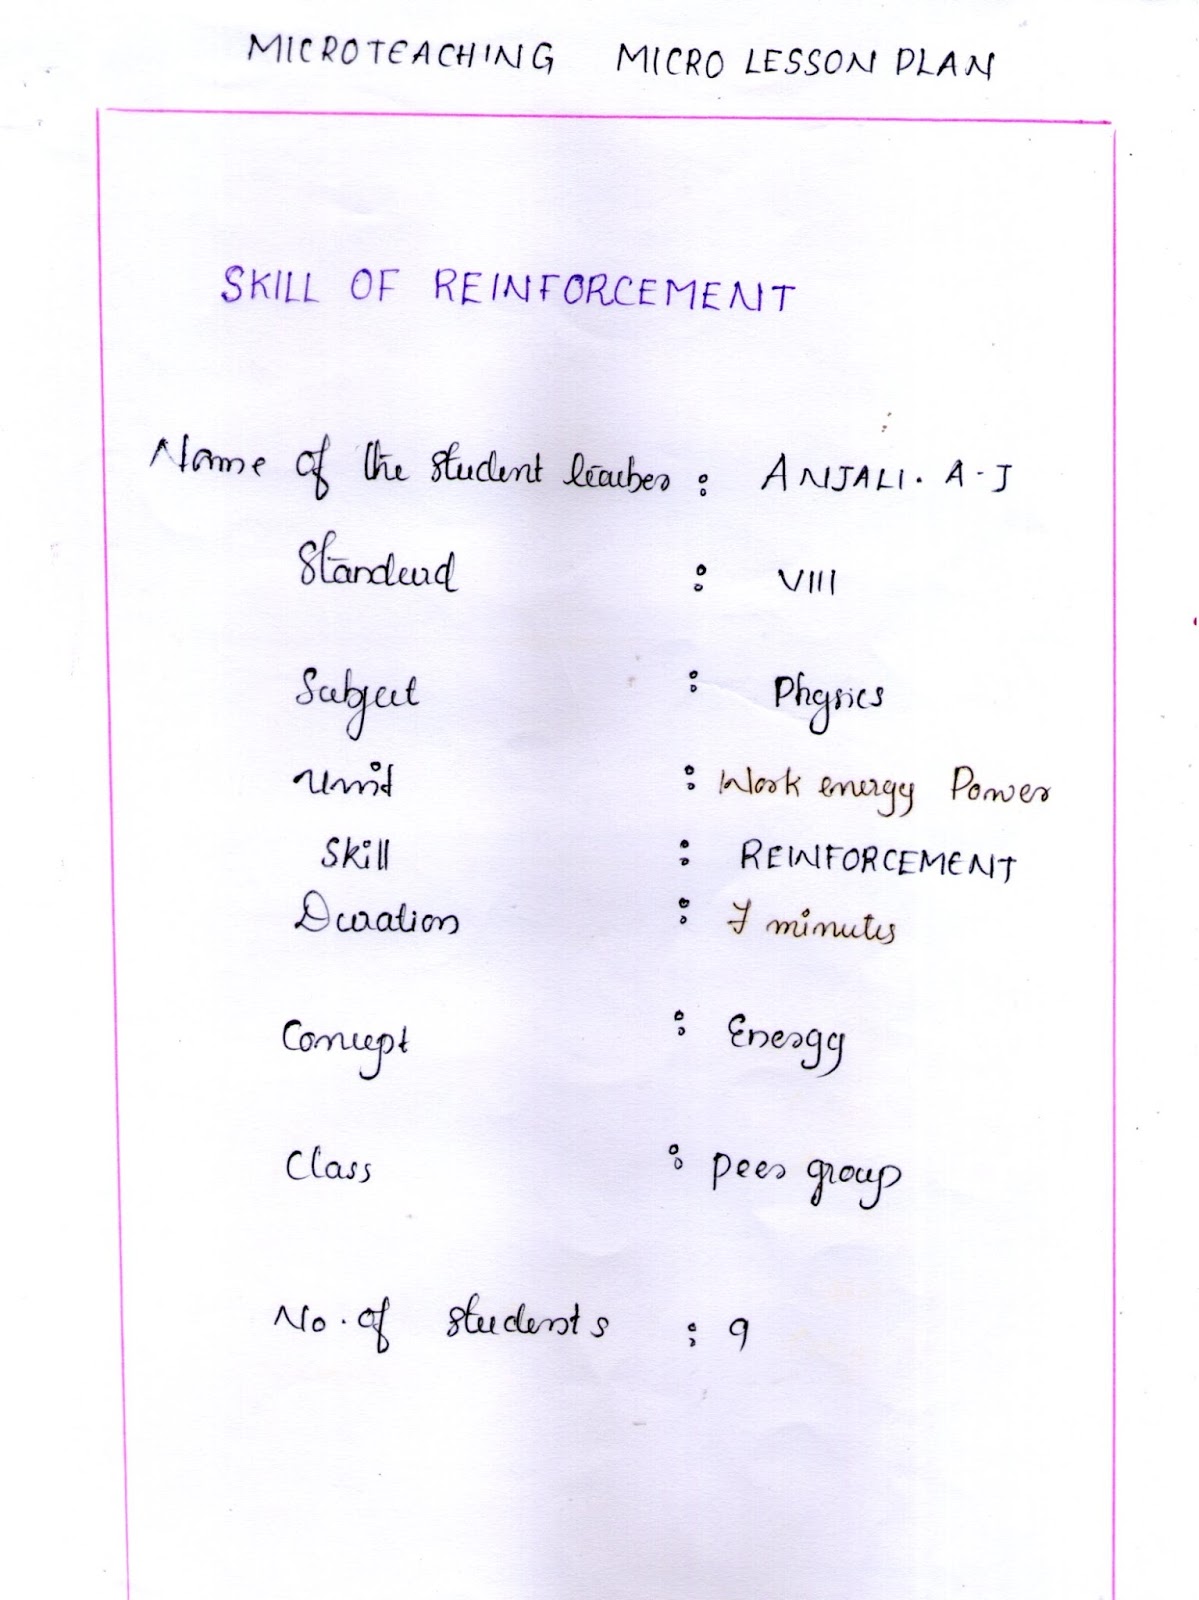 MICROTEACHING MICRO LESSON PLAN
SKILL OF REINFORCEMENT
Name of the student teacher : ANJALI. A-J
Standard : VIII
Subject : Physics
Unit : Work energy Power
Skill : REINFORCEMENT
Duration : 7 minutes
Concept : Energy
Class : peer group
No. of students : 9